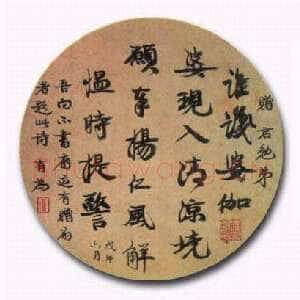 贈君勉弟
誰識婆伽
婆現入清涼境
願奉揚仁風解
慍時提警
戊午六月
吾向不書扇近有贈扇
者題此詩 有為